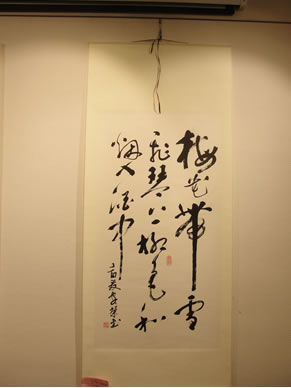 梅花帶雪
飛琴上柳色和
烟入酒中